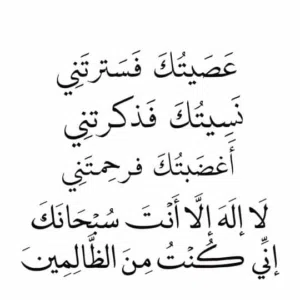 عَصَيتُكَ فَسَترتَنِي
نَسِيتُكَ فَذكرتِنِي
أَغضَبتُكَ فرحِمتَنِي
لَا إِلَهَ إِلَّا أَنْتَ سُبْحَانَكَ
إِنِّي كُنْتُ مِنَ الظَّالِمِينَ